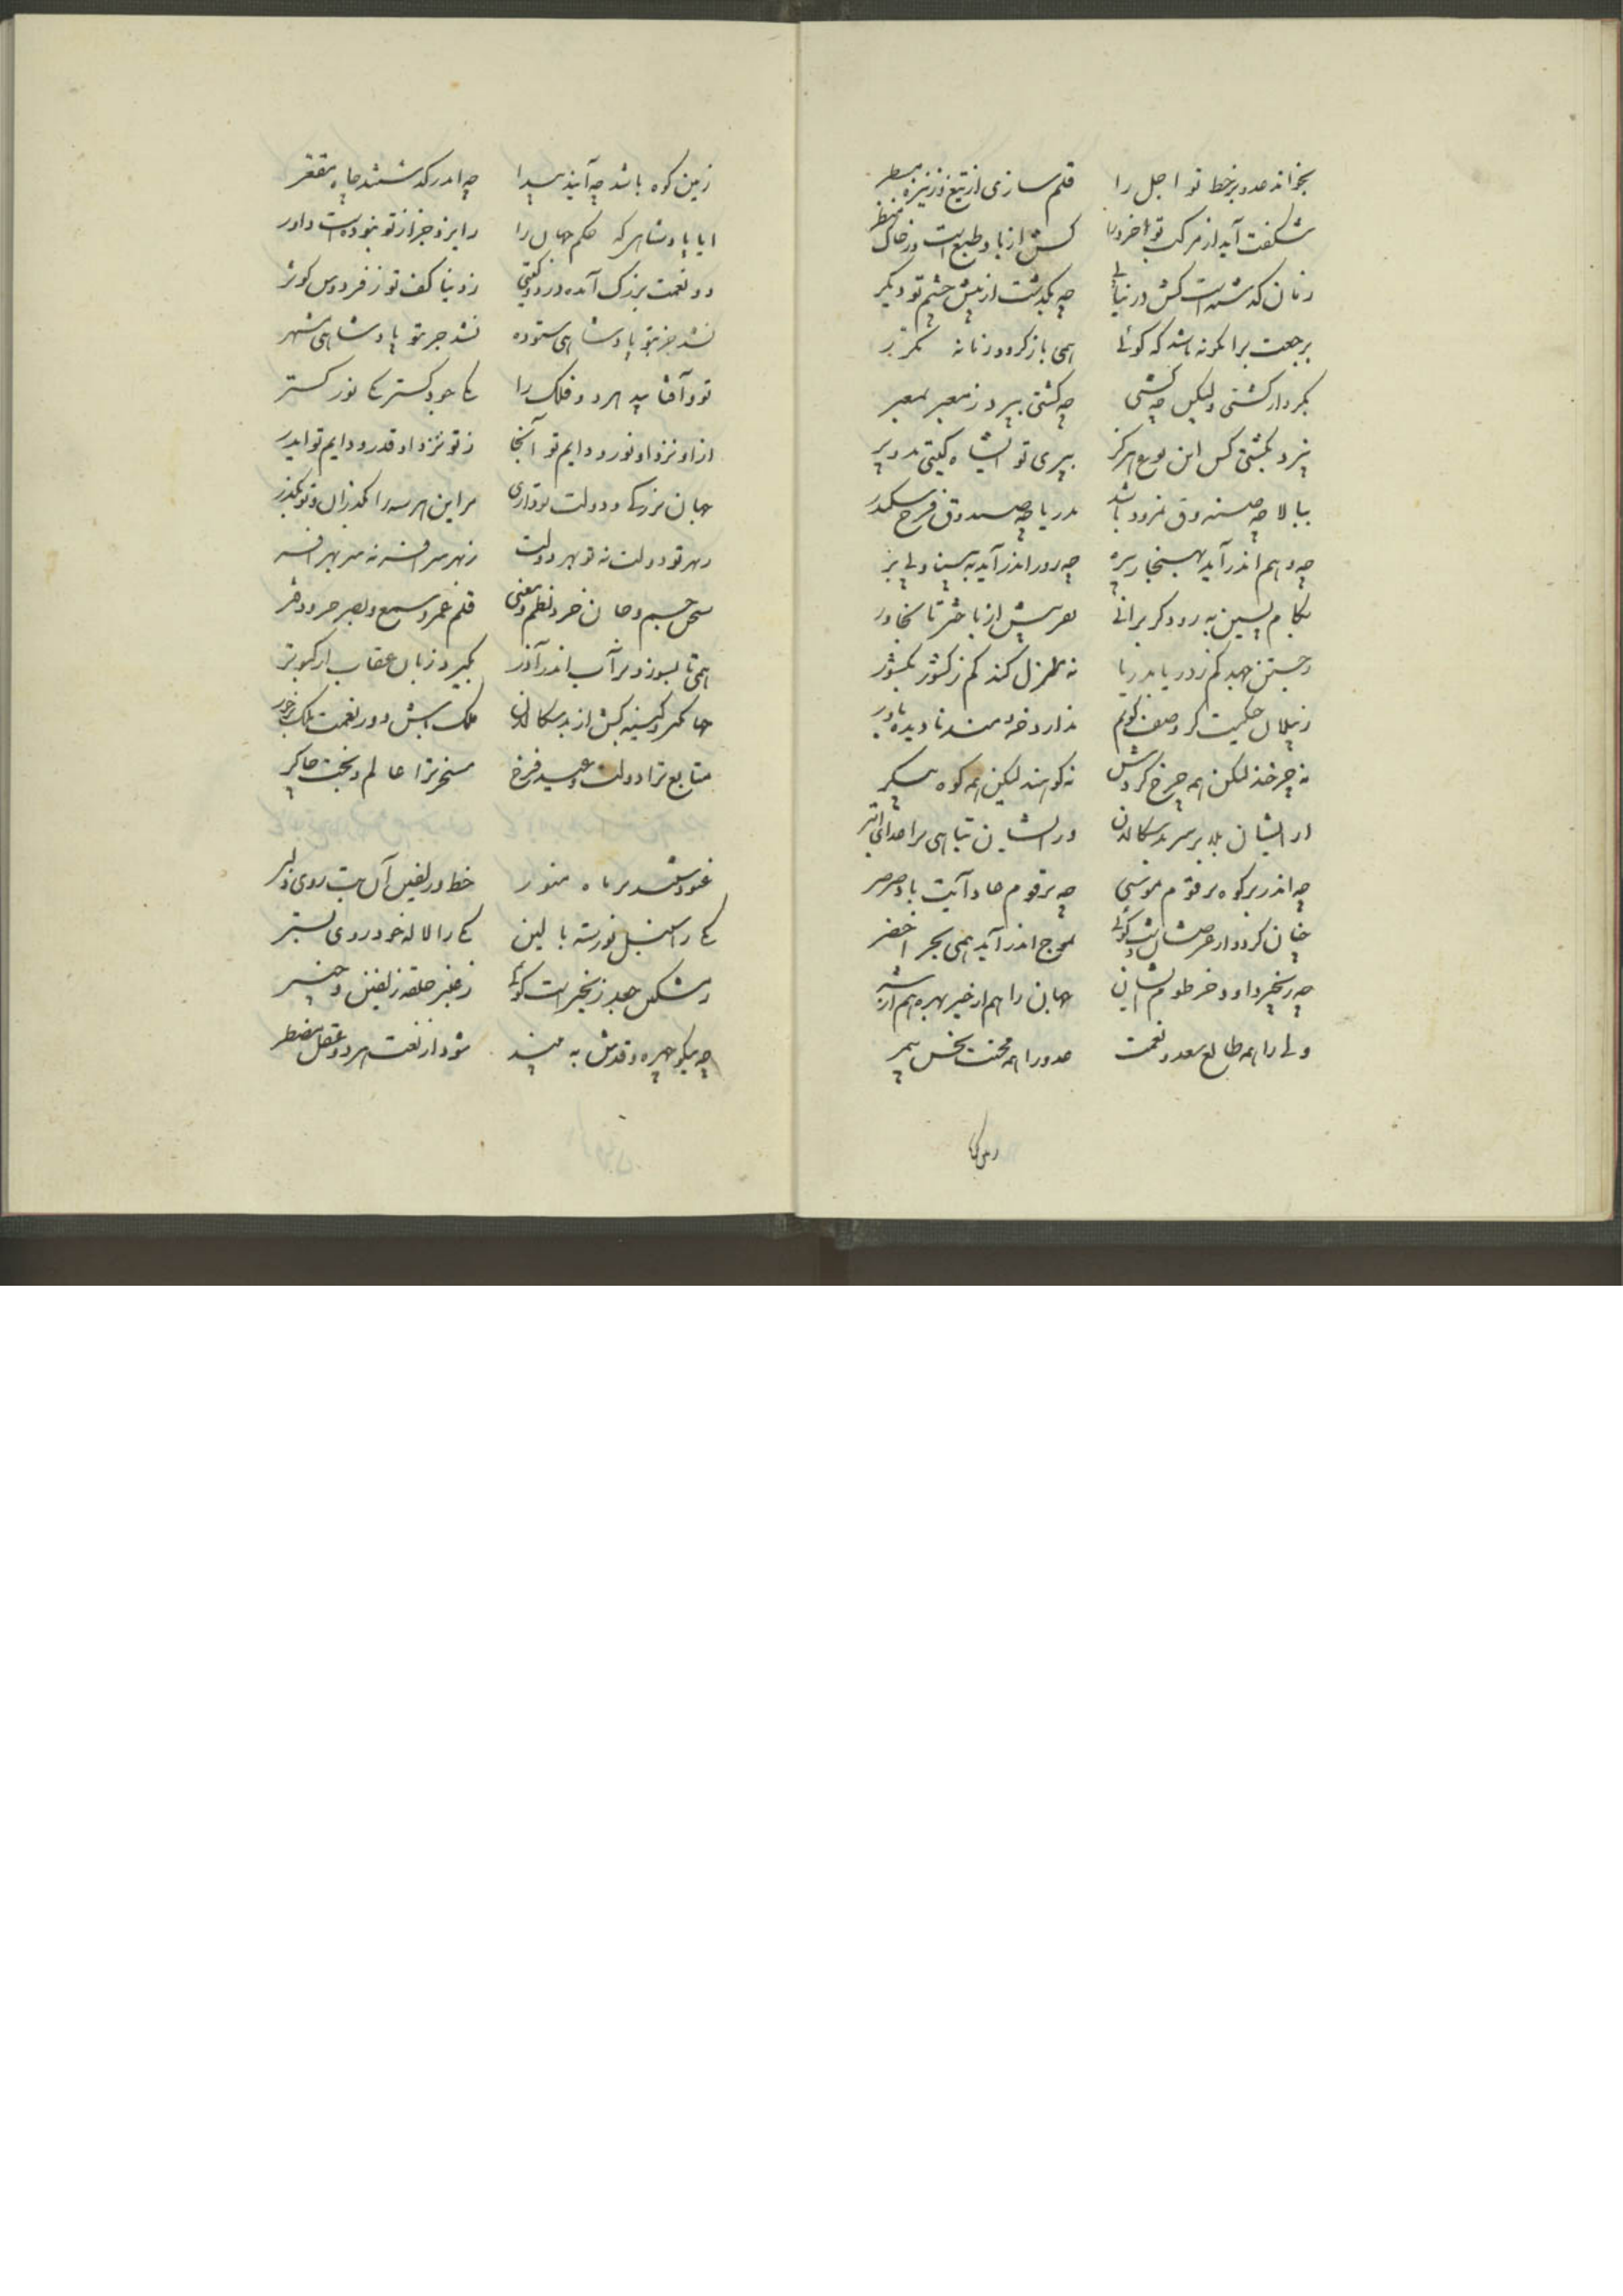 بخواند عدو بر خط تو اجل را قلم سازی از تیغ وز نیزه مسطر
شگفت آید از مرکب تو خرد را کش از باد طبع است وز خاک منظر
زمان گذشته است کش در نیابی چه بگذشت از پیش چشم تو دیگر
برجعت بدانگونه باشد که گوئی همی باز گردد زمانه
بکردار کشتی ولیکن چه کشتی چه کشتی ببرد ز معبر بمعبر
نبرد بکشتی کس این بوع هرگز ببری تو ایشاه گیتی بدو بر
ببالا چه صندوق نمرود باشد بدریا چه صندوق فرخ سکندر
چه وهم اندر آید بهنجار بیره چه روز اندر آید به پیش ولی بر
بگام پسین به رود گر برانی بفرسش از باختر تا بخاور
بجستن جهد کم ز دریا بدریا به منزل کند کم ز کشور بکشور
ز پیلان حکیت کر وصف گویم ندارد خردمند نادیده باور
نه چرخند لیکن همه چرخ گردش نه کوهند لیکن همه کوه پیکر
از ایشان بلا بر سر بدسگالان وز ایشان تباهی بر اعدای ابتر
چه اندر بر کوه بر قوم موسی چه بر قوم عاد آیت باد صرصر
چنان گردد از عرضشان دشت گوئی بموج اندر آید همی بحر اخضر
چه زنجیر داود خرطوم ایشان جهان را هم از خیر بهره هم از شر
ولی را همه طالع سعد و نعمت عدو را همه محنت نحس بیمر
زمین کوه باشد چه آیند پیدا چه اندر گذشتند چاه مقعر
ایا پادشاهی که حکم جهان را ز ایزد جز از تو نبوده است داور
دو نعمت بزرگ آمده در دو گیتی ز دنیا کف تو ز فردوس کوثر
نشد جز بتو پادشاهی ستوده نشد جز بتو پادشاهی مشهر
تو و آفتابید هر دو فلک را یکی جود گستر یکی نور گستر
از او نزد او نور و دایم تو آنجا ز تو نزد او قدر و دایم تو ایدر
جهان بزرگی و دولت تو داری مر این هر سه را بگذران و تو بگذر
ز بهر تو دولت نه تو بهر دولت ز بهر سر افسر نه سر بهر افسر
سخن جسم و جان خرد نظم و معنی قلم عمر و سمع و بصر حرو دفتر
همی تا بسوزد بر آب اندر آذر بگیرد زیان عقاب از کبوتر
جهانگیر و کینه کش از بدسگالان ملک باش و در نعمت ملک برخور
متابع ترا دولت و عید فرخ مسخر ترا عالم و بخت چاکر
غنودستند بر ماه منور خط و زلفین آن بت روی دلبر
یکی را سنبل نورسته بالین یکی را لاله خودروی بستر
بشکل جعد زنجیر است گوئی ز عنبر حلقه زلفین و چنبر
چه نیکو چهره و قدش به بیند شود از نعت هر دو عقل مضطر